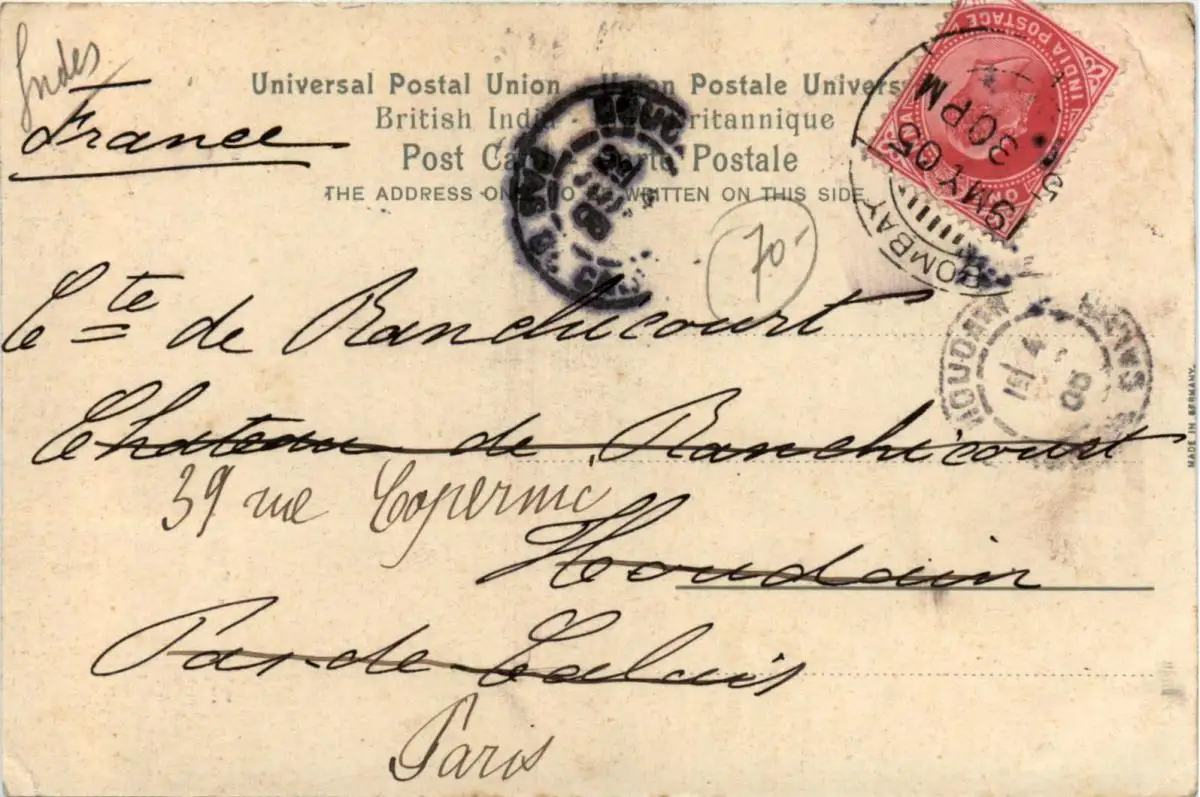 Indes
France
Universal Postal Union Union Postale Univers
British Indi ritannique
Post Ca te Postale
THE ADDRESS ON TO WRITTEN ON THIS SIDE
INDIA POSTAGE
BOMBAY
19 MY 05
30 PM
70-
Cte de Ranchicourt
Chateau de Ranchicourt
39 rue Copernic
Houdain
Pas-de-Calais
Paris
HOUDAIN
05
MADE IN GERMANY